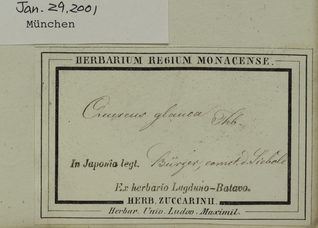 Jan. 29, 2001
München
HERBARIUM REGIUM MONACENSE.
Quercus glauca Thb.
In Japonia legt. Bürger, comct. d. Siebold
Ex herbario Lugduno-Batavo.
HERB. ZUCCARINII.
Herbar. Univ. Ludov. Maximil.